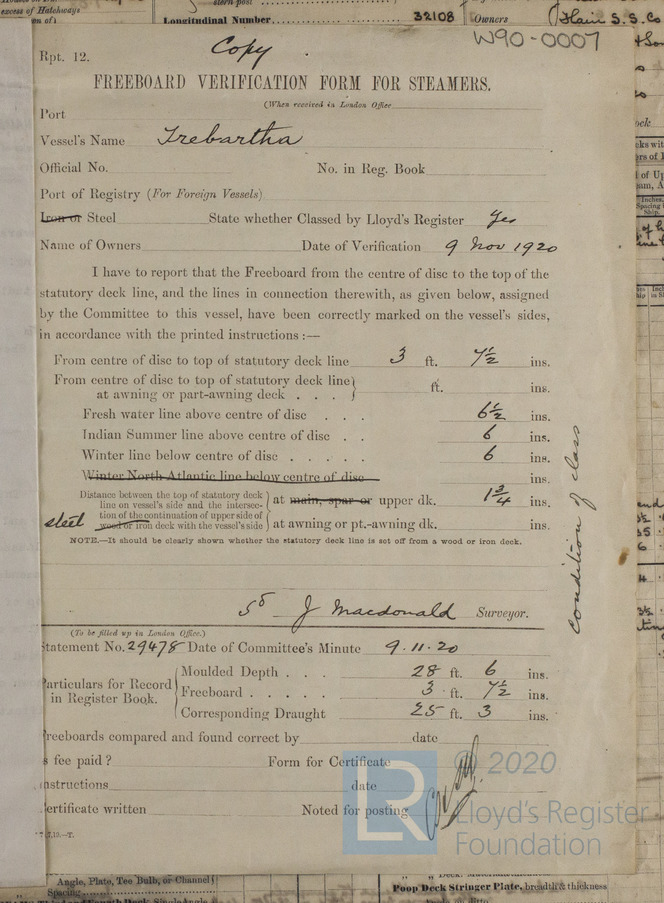 excess of Hatchways
stern post
Longitudinal Number
32108
Owners
Hain S. S. Co
W90-0007
Rpt. 12.
Copy
FREEBOARD VERIFICATION FORM FOR STEAMERS.
(When received in London Office
Port
Vessel's Name Trebartha
Official No. No. in Reg. Book
Port of Registry (For Foreign Vessels)
Iron or Steel State whether Classed by Lloyd's Register Yes
Name of Owners Date of Verification 9 Nov 1920
I have to report that the Freeboard from the centre of disc to the top of the
statutory deck line, and the lines in connection therewith, as given below, assigned
by the Committee to this vessel, have been correctly marked on the vessel's sides,
in accordance with the printed instructions :—
From centre of disc to top of statutory deck line 3 ft. 7½ ins.
From centre of disc to top of statutory deck line
at awning or part-awning deck . . . ft. ins.
Fresh water line above centre of disc . . 6½ ins.
Indian Summer line above centre of disc . . 6 ins.
Winter line below centre of disc . . . . . 6 ins.
Winter North Atlantic line below centre of disc ins.
Distance between the top of statutory deck
line on vessel's side and the intersec-
tion of the continuation of upper side of
steel wood or iron deck with the vessel's side
at main, spar or upper dk. 1¾ ins.
at awning or pt.-awning dk. ins.
NOTE.—It should be clearly shown whether the statutory deck line is set off from a wood or iron deck.
condition of class
J Macdonald Surveyor.
(To be filled up in London Office.)
Statement No. 29478 Date of Committee's Minute 9.11.20
Particulars for Record
in Register Book.
Moulded Depth . . . 28 ft. 6 ins.
Freeboard . . . . . 3 ft. 7½ ins.
Corresponding Draught 25 ft. 3 ins.
Freeboards compared and found correct by date
s fee paid ? Form for Certificate
nstructions date
ertificate written Noted for posting
© 2020
LR
Lloyd's Register
Foundation
Angle, Plate, Tee Bulb, or Channel
Spacing
Poop Deck Stringer Plate, breadth & thickness